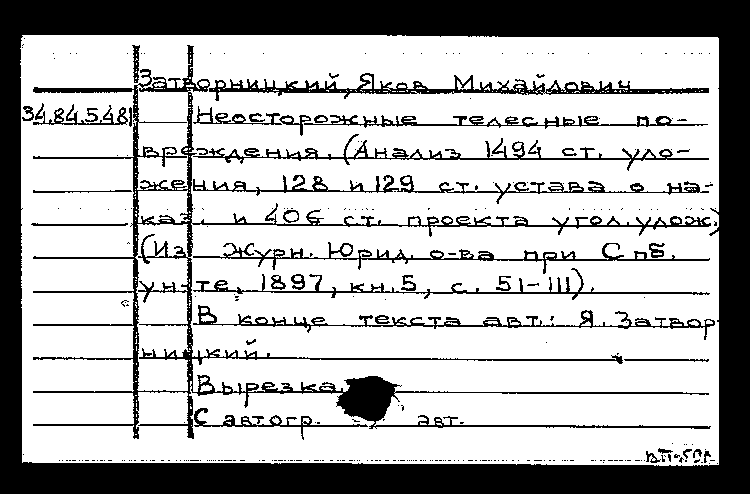 Затворницкий, Яков Михайлович
34.84.5.48 Неосторожные телесные по-
вреждения. (Анализ 1494 ст. уло-
жения, 128 и 129 ст. устава о на-
каз. и 406 ст. проекта угол. улож.)
(Из Журн. Юрид. о-ва при Спб.
ун-те, 1897, кн. 5, с. 51-111).
В конце текста авт.: Я. Затвор-
ницкий.
Вырезка.
С автогр. авт.